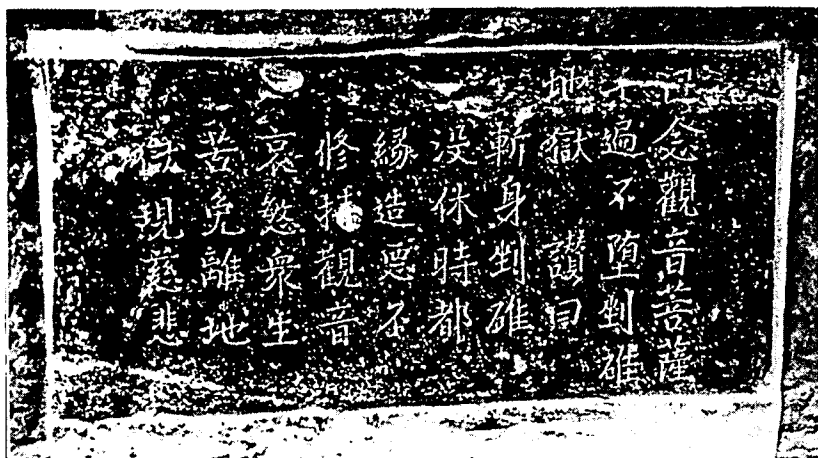 念觀音菩薩
千遍不墮剉碓
地獄 讃曰
斬身剉碓
没休時都
緣造惡不
修持觀音
哀愍衆生
苦免離地
獄現慈悲